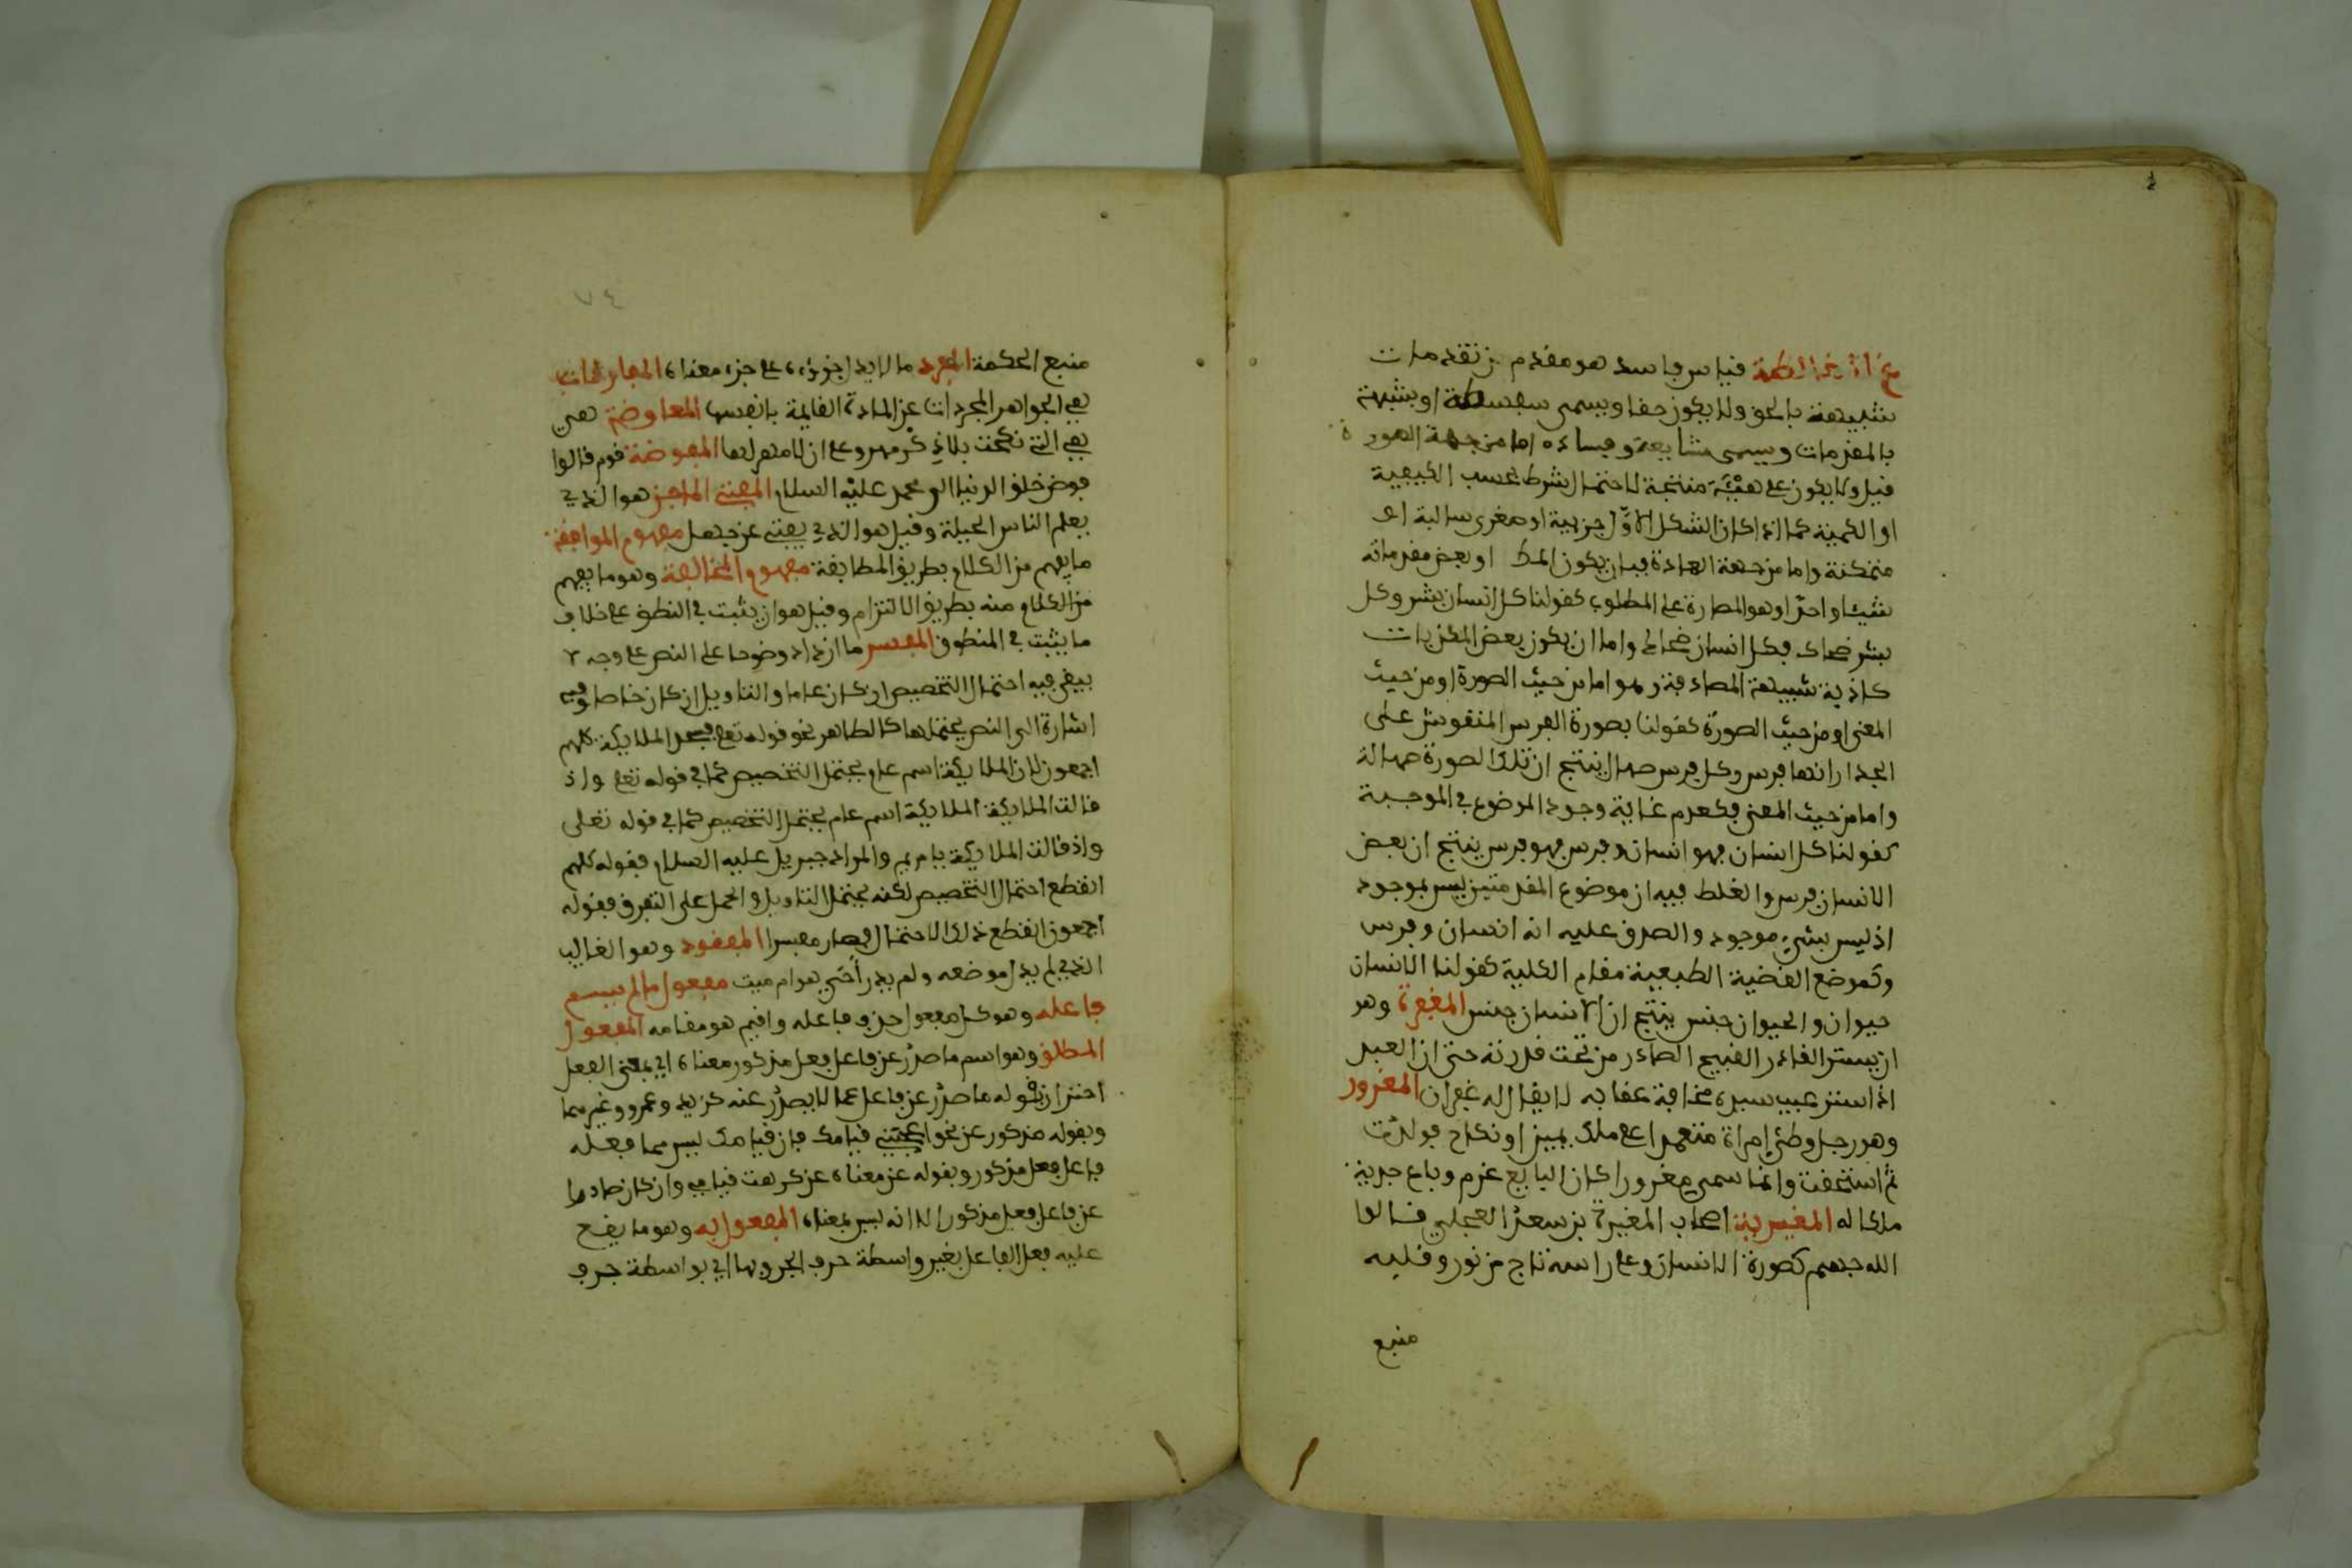 المغالطة قياس فاسد هو مقدم من تقدمات
شبيهة بالحق ولا يكون حقا ويسمى سفسطة او شبيهة
بالمقدمات ويسمى مشاغبة وفساده اما من جهة الصورة
قيل ولا يكون على هيئة منتجة لاختلال شرط بحسب الكيفية
او الكمية كما اذا كان الشكل الاول جزئية او صغرى سالبة او
متمكنة واما من جهة المادة فبان يكون المط او بعض مقدماته
شيئا واحدا وهو المصادرة على المطلوب كقولنا كل انسان بشر وكل
بشر ضحاك فكل انسان ضحاك واما ان يكون بعض المكذبات
كاذبة شبيهة المصادقة وهو اما من حيث الصورة او من حيث
المعنى او من حيث الصورة كقولنا بصورة الفرس المنقوش على
الجدار انها فرس وكل فرس صهال ينتج ان تلك الصورة صهالة
واما من حيث المعنى فكعدم غاية وجود الموضوع في الموجبة
كقولنا كل انسان فهو انسان وفرس فهو فرس ينتج ان بعض
الانسان فرس والغلط فيه ان موضوع المقدمتين ليس بموجود
اذ ليس بشيء موجود والصدق عليه انه انسان وفرس
وكموضع القضية الطبيعية مقام الكلية كقولنا الانسان
حيوان والحيوان جنس ينتج ان الانسان جنس المغفرة وهو
ان يستر القادر القبيح الصادر من تحت قدرته حتى ان العبد
اذا ستر عيب سيده مخافة عقابه لا يقال له غفران المغرور
وهو رجل وطئ امراة متعمدا على ملك يمين او نكاح فولدت
ثم استحقت وانما سمي مغرورا كان البايع غره وباع جرية
ملكا له المغيرية اصحاب المغيرة بن سعد العجلي قالوا
الله جسم كصورة الانسان وعلى راسه تاج من نور وقلبه
منبع
٧٤
منبع الحكمة المفرد ما لا يدل جزؤه على جزء معناه المفارقات
هي الجواهر المجردات عن المادة القايمة بانفسها المفاوضة هي
هي التي نكحت بلا ذكر مهر وعلى ان لا مهر لها المفوضة قوم قالوا
فوض خلق الدنيا الى محمد عليه السلام المفتي الماجن هو الذي
يعلم الناس الحيلة وقيل هو الذي يفتي عن جهل مفهوم الموافقة
ما يفهم من الكلام بطريق المطابقة مفهوم المخالفة وهو ما يفهم
من الكلام منه بطريق الالتزام وقيل هو ان يثبت في النطق على خلاف
ما يثبت في المنطوق المفسر ما ازداد وضوحا على النص على وجه لا
يبقى فيه احتمال التخصيص ان كان عاما والتاويل ان كان خاصا وفيه
اشارة الى النص يحتملها كالظاهر نحو قوله تعلى فسجد الملايكة كلهم
اجمعون لان الملايكة اسم عام يحتمل التخصيص كما في قوله تعلى واذ
قالت الملايكة الملايكة اسم عام يحتمل التخصيص كما في قوله تعلى
واذ قالت الملايكة يا مريم والمراد جبريل عليه السلام فقوله كلهم
انقطع احتمال التخصيص لكنه يحتمل التاويل والحمل على التفرق فقوله
اجمعون انقطع ذلك الاحتمال فصار مفسرا المفقود وهو الغايب
الذي لم يدر موضعه ولم يدر أحي هو ام ميت مفعول ما لم يسم
فاعله وهو كل مفعول حذف فاعله واقيم هو مقامه المفعول
المطلق وهو اسم ما صدر عن فاعل فعل مذكور معناه اي بمعنى الفعل
احترز بقوله ما صدر عن فاعل عما لا يصدر عنه كزيد وعمرو وغيرهما
وبقوله مذكور عن نحو اعجبني قيامك فان قيامك ليس مما فعله
فاعل فعل مذكور وبقوله عن معناه عن كرهت قيامي وان كان صادرا
عن فاعل فعل مذكور الا انه ليس بمعناه المفعول به وهو ما يقع
عليه فعل الفاعل بغير واسطة حرف الجر وبها اي بواسطة حرف